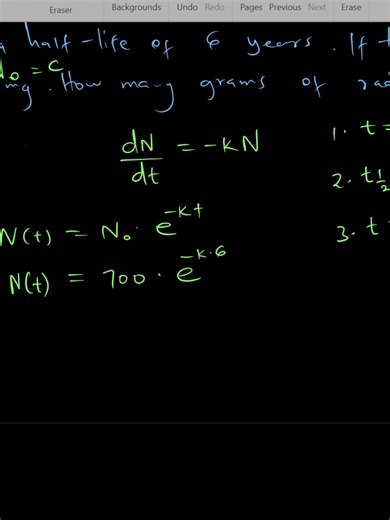 Eraser Backgrounds Undo Redo Pages Previous Next Erase
half-life of 6 years. If
N₀ = C
mg. How many grams of
dN/dt = -KN
1. t =
2. t½
3. t
N(t) = N₀ · e^(-Kt)
N(t) = 700 · e^(-K·6)